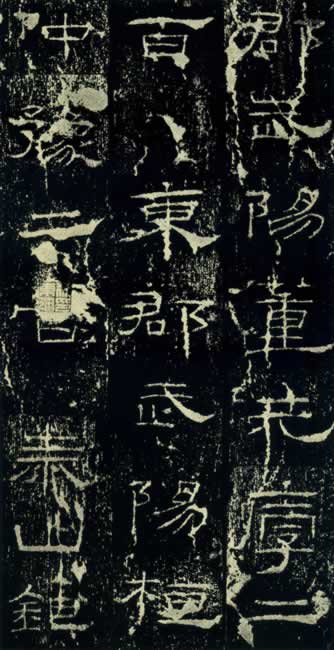 郡武陽董元厚二
百東郡武陽桓
仲豫二百泰山鉅